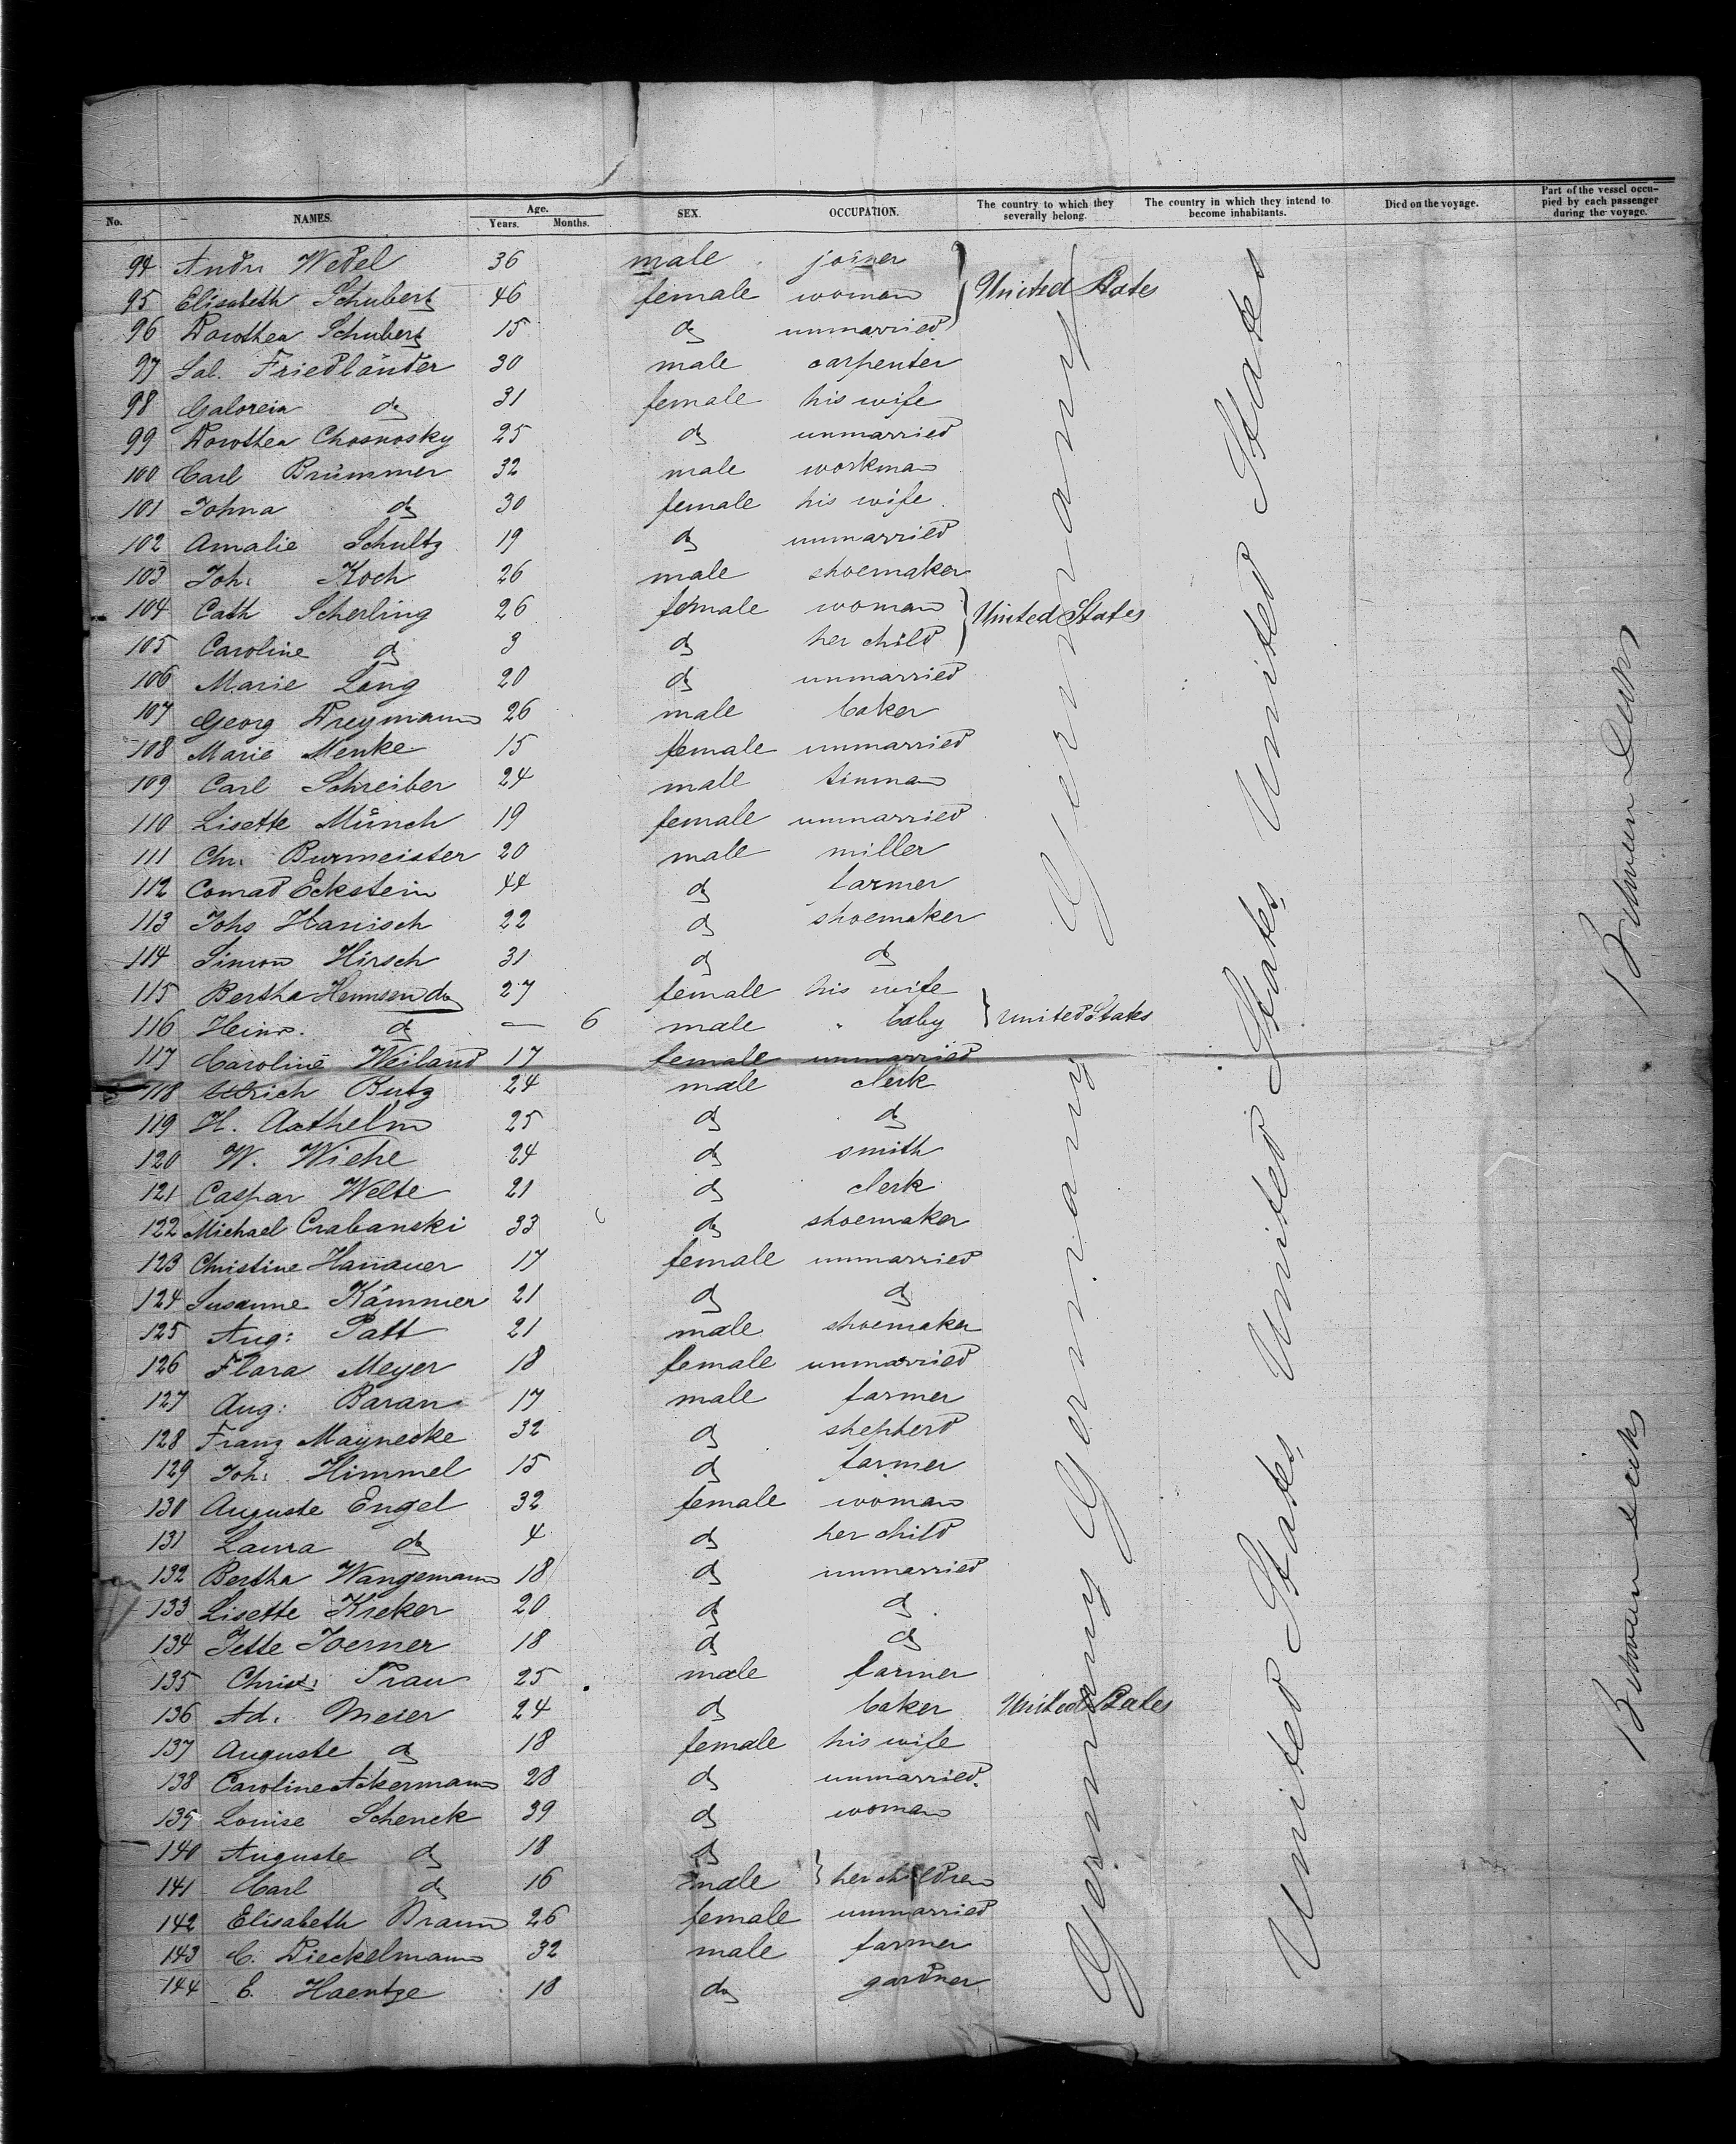 No. NAMES. Age. Years. Months. SEX. OCCUPATION. The country to which they severally belong. The country in which they intend to become inhabitants. Died on the voyage. Part of the vessel occupied by each passenger during the voyage.
94 Andr. Wedel 36 male joiner
95 Elisabeth Schubert 46 female woman United States
96 Dorothea Schubert 15 do unmarried
97 Sal. Friedländer 30 male carpenter
98 do 31 female his wife
99 Dorothea Chosnosky 25 do unmarried
100 Carl Brümmer 32 male workman
101 Johna do 30 female his wife
102 Amalie Schultz 19 do unmarried
103 Joh: Koch 26 male shoemaker
104 Cath Scherling 26 female woman United States
105 Caroline do 3 do her child
106 Marie Lang 20 do unmarried
107 Georg Dreymann 26 male baker
108 Marie Menke 15 female unmarried
109 Carl Schreiber 24 male tinman
110 Lisette Münch 19 female unmarried
111 Chr: Burmeister 20 male miller
112 Conrad Eckstein 44 do farmer
113 Johs Hanisch 22 do shoemaker
114 Simon Hirsch 31 do do
115 Bertha Hemsen do 27 female his wife
116 Heinr. do — 6 male baby United States
117 Caroline Weiland 17 female unmarried
118 Ullrich Butz 24 male clerk
119 H. 25 do do
120 W. Wiehe 24 do smith
121 Caspar Welte 21 do clerk
122 Michael Crabanski 33 do shoemaker
123 Christine Hanauer 17 female unmarried
124 Susanne Kämmer 21 do do
125 Aug: Patt 21 male shoemaker
126 Flara Meyer 18 female unmarried
127 Aug: Baran 17 male farmer
128 Franz Maynecke 32 do shepherd
129 Joh: Himmel 15 do farmer
130 Auguste Engel 32 female woman
131 Laura do 4 do her child
132 Bertha Wangemann 18 do unmarried
133 Lisette Kreker 20 do do
134 Jette Joerner 18 do do
135 Christ: Prau 25 male farmer
136 Ad. Meier 24 do baker United States
137 Auguste do 18 female his wife
138 Caroline Ackermann 28 do unmarried
139 Louise Schenck 39 do woman
140 Auguste do 18 do
141 Carl do 16 male her children
142 Elisabeth Braun 26 female unmarried
143 C. Dieckelmann 32 male farmer
144 E. Haentze 18 do gardner
Germany Germany Germany
United States United States United States
Between decks Between decks